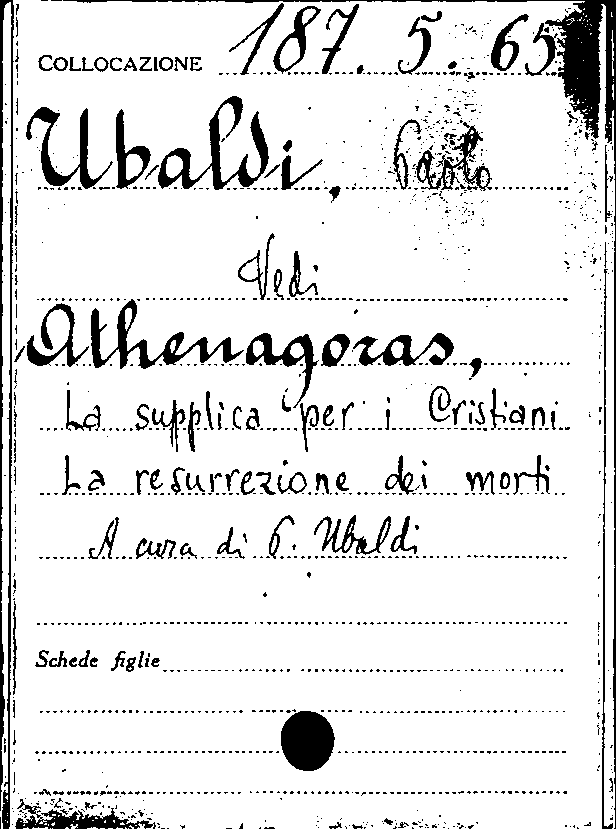 COLLOCAZIONE 187. 5. 65
Ubaldi, Paolo
Vedi
Athenagoras,
La supplica per i Cristiani
La resurrezione dei morti
A cura di P. Ubaldi
Schede figlie